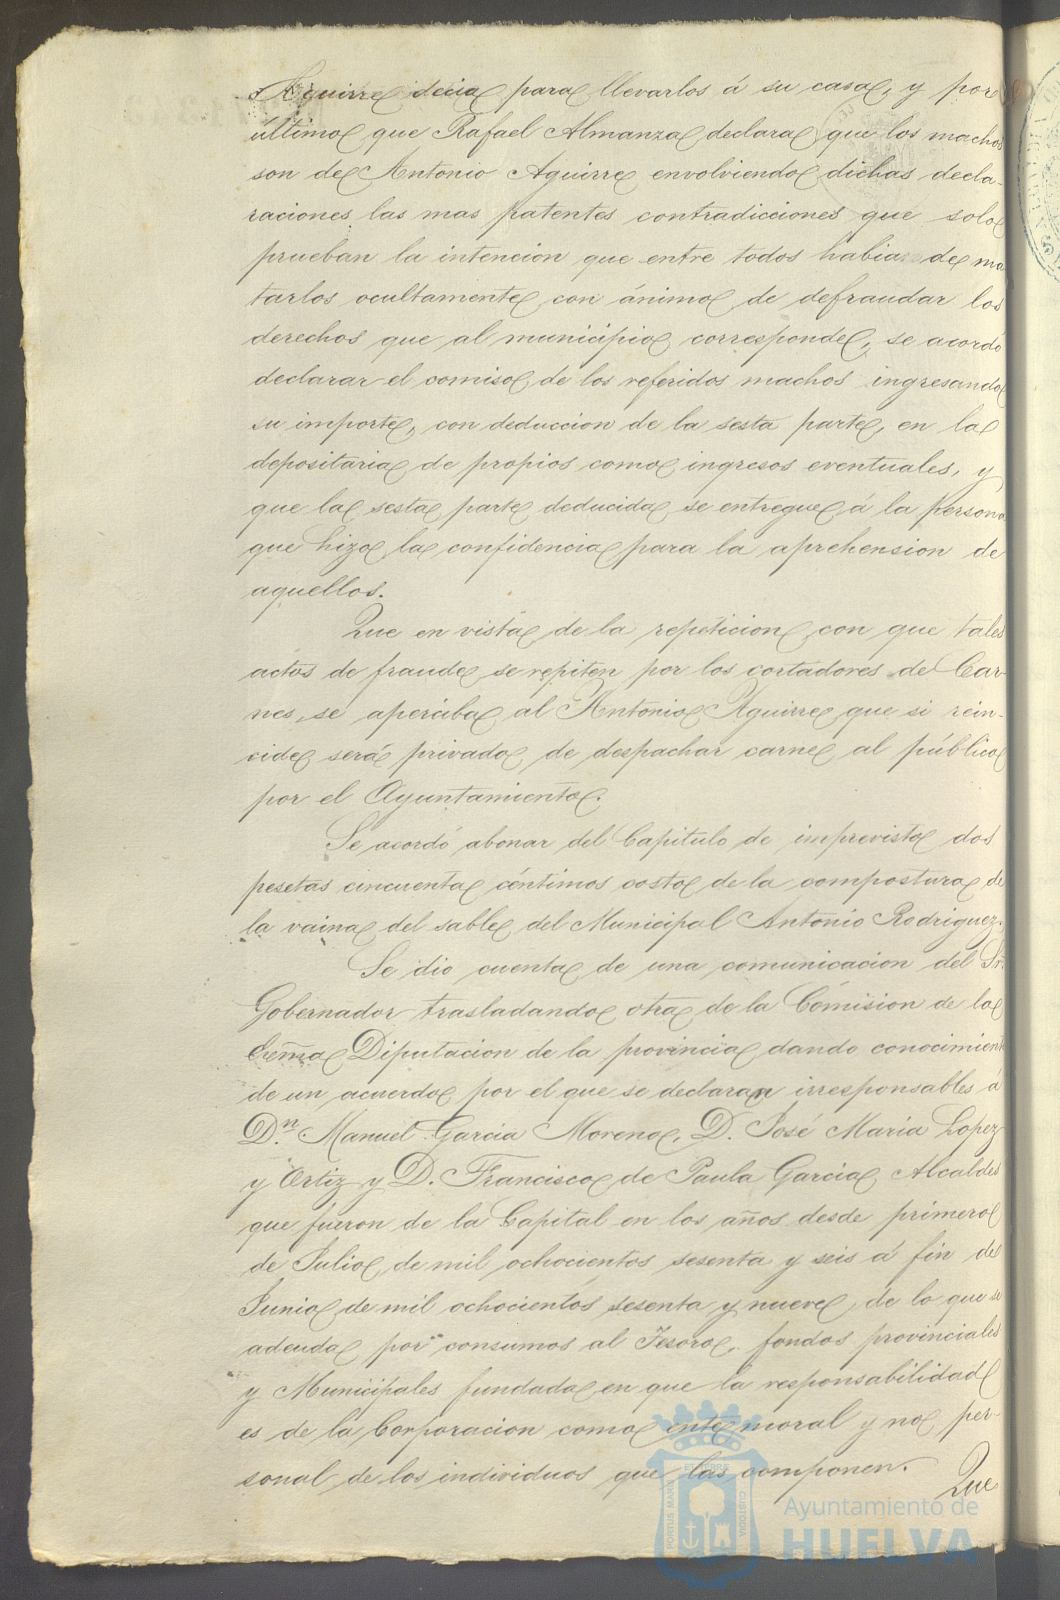 Aguirre decia para llevarlos á su casa, y por
último que Rafael Almanza declara que los machos
son de Antonio Aguirre envolviendo dichas decla-
raciones las mas patentes contradicciones que solo
prueban la intencion que entre todos habia de ma
tarlos ocultamente con ánimo de defraudar los
derechos que al municipio corresponde, se acordó
declarar el comiso de los referidos machos ingresando
su importe, con deduccion de la sesta parte, en la
depositaria de propios como ingresos eventuales, y
que la sesta parte deducida se entregue á la persona
que hizo la confidencia para la aprehension de
aquellos.
Que en vista de la repeticion con que tales
actos de fraude se repiten por los cortadores de Car-
nes, se aperciba al Antonio Aguirre que si rein-
cide será privado de despachar carne al público
por el Ayuntamiento.
Se acordó abonar del Capitulo de imprevisto dos
pesetas cincuenta céntimos costo de la compostura de
la vaina del sable del Municipal Antonio Rodriguez.
Se dio cuenta de una comunicacion del Sr.
Gobernador trasladando otra de la Comision de la
Exma Diputacion de la provincia dando conocimient
de un acuerdo por el que se declaran irresponsables á
D.n Manuel Garcia Moreno, D. José Maria Lopez
y Ortiz y D. Francisco de Paula Garcia Alcaldes
que fueron de la Capital en los años desde primero
de Julio de mil ochocientos sesenta y seis á fin de
Junio de mil ochocientos sesenta y nueve, de lo que se
adeuda por consumos al Tesoro, fondos provinciales
y Municipales fundada en que la responsabilidad
es de la Corporacion como ente moral y no per-
sonal de los individuos que las componen.
Que
PORTUS MARIS ET TERRE CUSTODIA
Ayuntamiento de
HUELVA